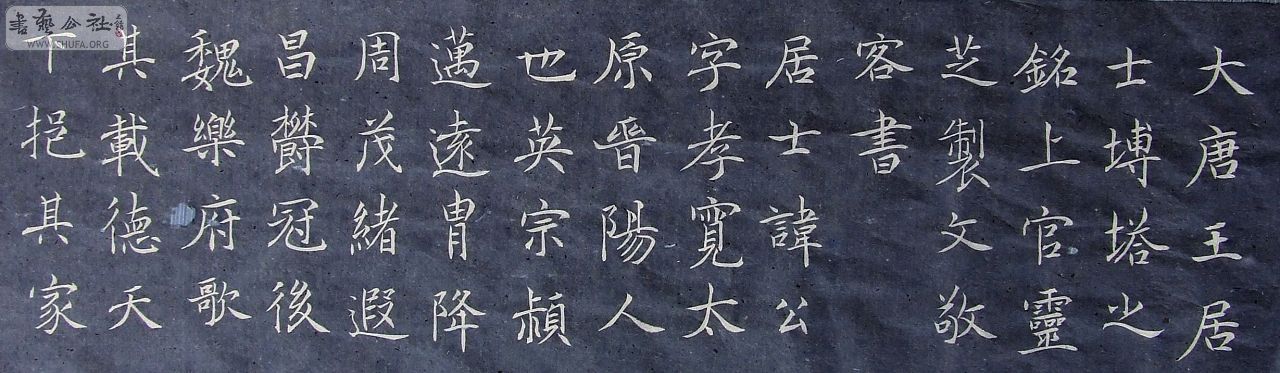 大唐王居
士塼塔之
銘上官靈
芝製文敬
客書
居士諱公
字孝寬太
原晉陽人
也英宗穎
邁遠胄降
周茂緒遐
昌欝冠後
魏樂府歌
其載德天
下挹其家
書藝公社
WWW.SHUFA.ORG